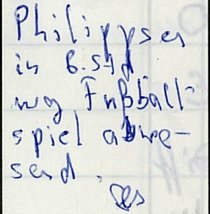 Philippsen
in B.std
wg Fußball-
spiel abwe-
send.